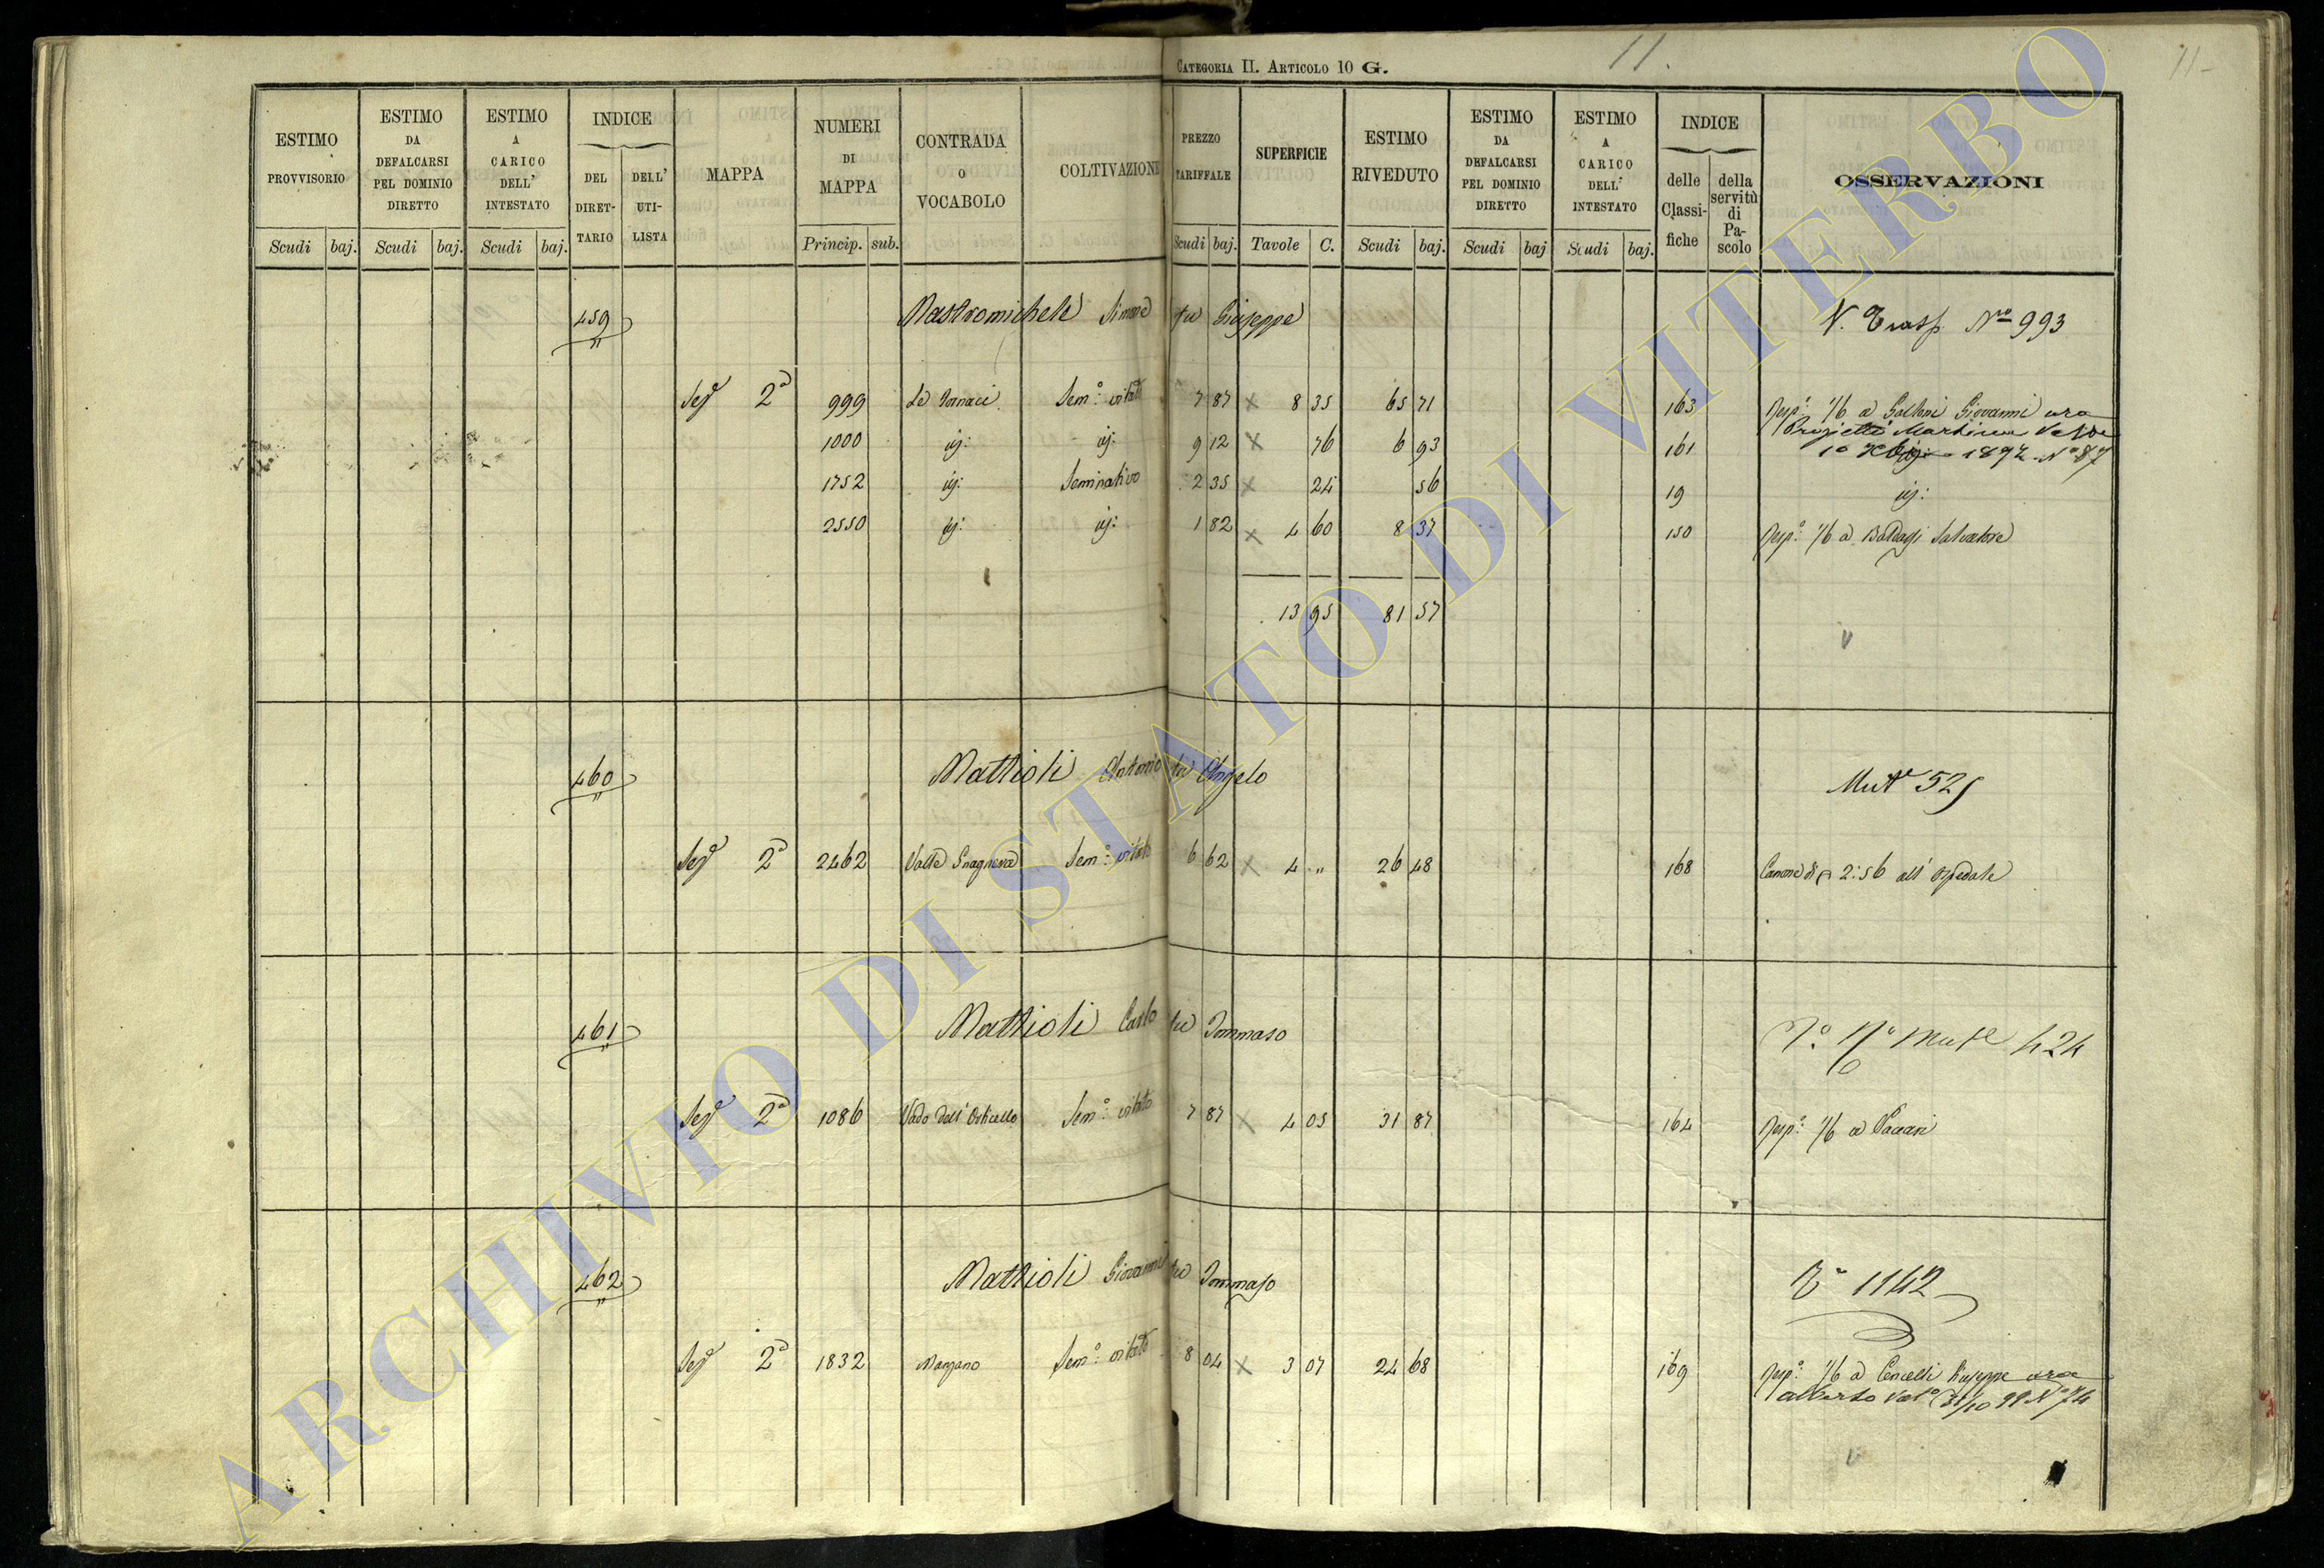 CATEGORIA II. ARTICOLO 10 G.
11.
11-
ESTIMO PROVVISORIO Scudi baj.
ESTIMO DA DEFALCARSI PEL DOMINIO DIRETTO Scudi baj.
ESTIMO A CARICO DELL' INTESTATO Scudi baj.
INDICE DEL DIRET- TARIO DELL' UTI- LISTA
MAPPA
NUMERI DI MAPPA Princip. sub.
CONTRADA O VOCABOLO
COLTIVAZIONE
PREZZO TARIFFALE Scudi baj.
SUPERFICIE Tavole C.
ESTIMO RIVEDUTO Scudi baj.
ESTIMO DA DEFALCARSI PEL DOMINIO DIRETTO Scudi baj
ESTIMO A CARICO DELL' INTESTATO Scudi baj.
INDICE delle Classi- fiche della servitù di Pa- scolo
OSSERVAZIONI
459 Mastromichele Simone fu Giuseppe V. Trasp. Nro 993
Sez 2a 999 Le Fornaci Sem.o vitato 7 87 8 35 65 71 163 Risp. 1/6 a Galloni Giovanni ora
1000 ij: ij: 9 12 76 6 93 161
1897 No 87
1752 ij: Seminativo 2 35 24 56 19 ij:
2550 ij: ij: 1 82 4 60 8 37 150 Risp. 1/6 a Salvatore
13 95 81 57
460 Mattioli Antonio fu Angelo Mut 525
Sez 2a 2462 Valle Sem.o vitato 6 62 4 „ 26 48 168 Canone di 2:56 all' Ospedale
461 Mattioli Carlo fu Tommaso 424
Sez 2a 1086 Vado dell' Orticello Sem.o vitato 7 87 4 05 31 87 164 Risp. 1/6 a
462 Mattioli Giovanni fu Tommaso 1142
Sez 2a 1832 Manzano Sem.o vitato 8 04 3 07 24 68 169 Risp. 1/6 a Cencelli Giuseppe ora
Alberto No 74
ARCHIVIO DI STATO DI VITERBO